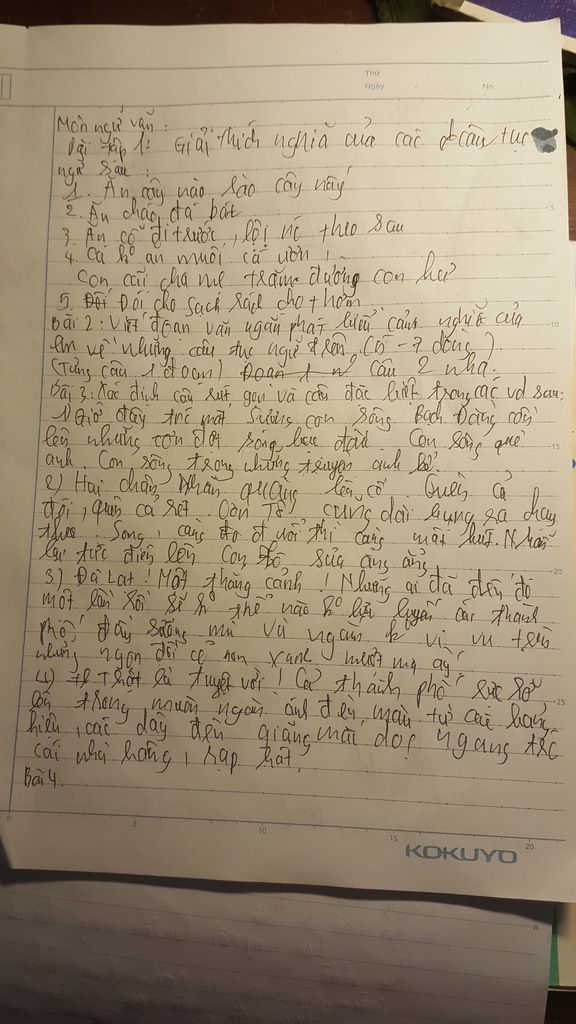 Thứ
Ngày No.
Môn ngữ văn :
Bài tập 1: Giải thích nghĩa của các câu tục
ngữ sau :
1. Ăn cây nào rào cây nấy
2. Ăn cháo, đá bát
3. Ăn cỗ đi trước, lội nc theo sau
4. Cá ko ăn muối cá ươn,
Con cãi cha mẹ trăm đường con hư
5. Đói cho sạch rách cho thơm
Bài 2: Viết đoạn văn ngắn phát biểu cảm nghĩ của
em về những câu tục ngữ trên (5 - 7 dòng).
(Từng câu 1 đoạn) Đoạn 1 câu 2 nha.
Bài 3: Xác định câu rút gọn và câu đặc biệt trong các vd sau:
1) Giờ đây trc mắt Sương con sông Bạch Đằng cồn
lên những cơn dời sóng bạc đầu. Con sông quê
anh. Con sông trong những truyện anh kể.
2) Hai chân Nhẫn quàng lên cổ. Quên cả
đói, quên cả rét. Con Tô cũng dài bụng ra chạy
theo. Song, càng đuổi thì càng mất hút. Nhẫn
lại tức điên lên Con Tô sủa ăng ẳng.
3) Đà Lạt! Một thắng cảnh! Những ai đã đến đó
một lần rồi sẽ ko thể nào ko lưu luyến các thành
phố đầy sương mù và ngàn vi vu trên
những ngọn đồi cỏ non xanh mướt mạ ấy
4) Thật là tuyệt vời! Cả thành phố rực rỡ
lên trong muôn ngàn ánh đèn, màu từ các bảng
hiệu, các dây đèn giăng mắc dọc ngang trc
các nhà hàng, rạp hát.
Bài 4.
5
10
15
20
25
0 5 10 15 20
KOKUYO